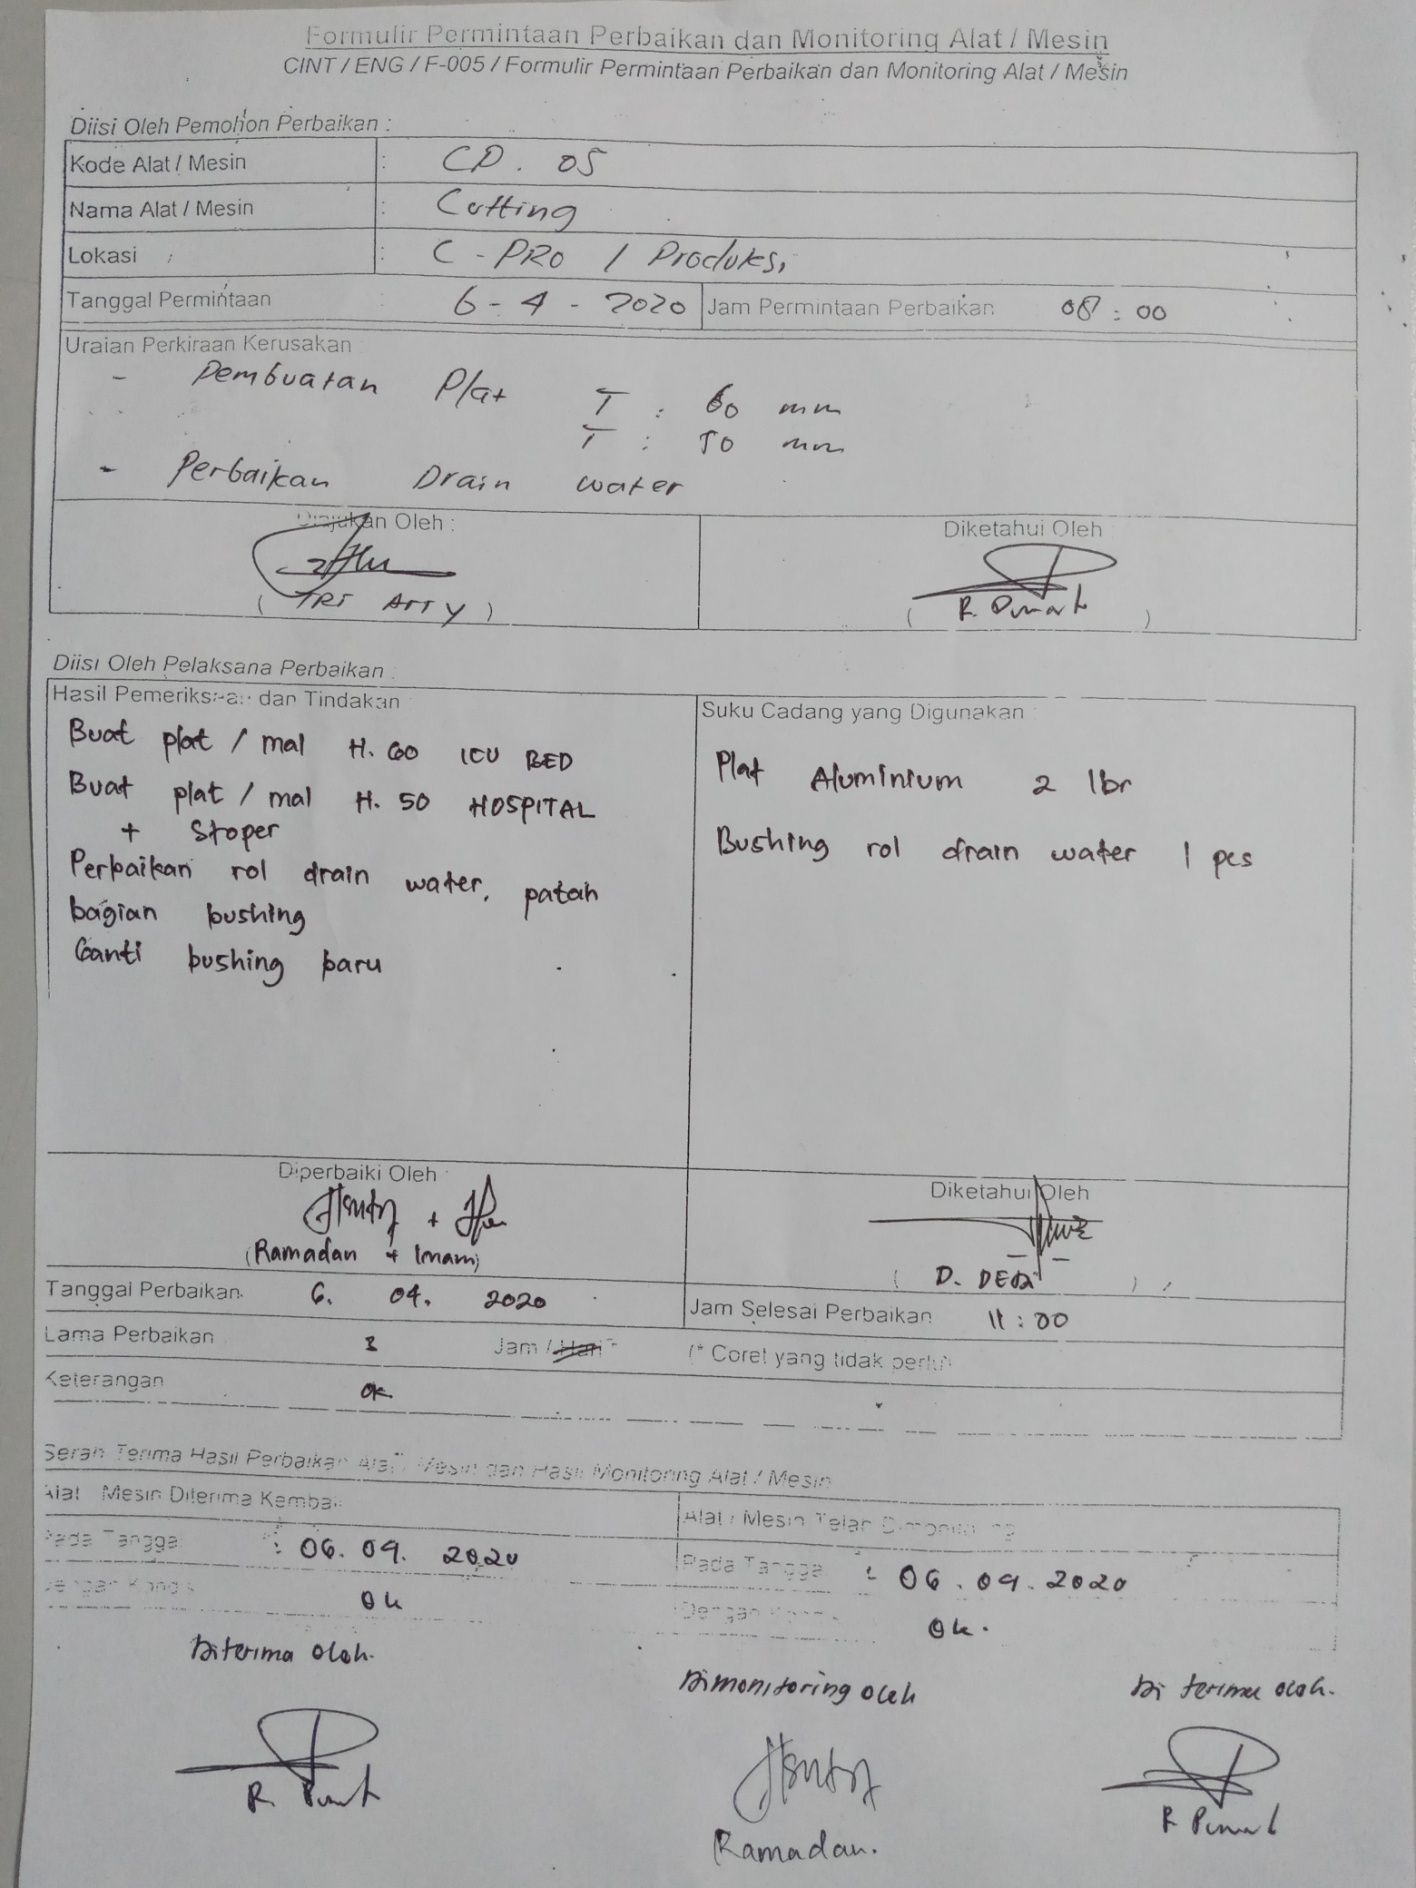 Formulir Permintaan Perbaikan dan Monitoring Alat / Mesin
CINT / ENG / F-005 / Formulir Permintaan Perbaikan dan Monitoring Alat / Mesin
Diisi Oleh Pemohon Perbaikan :
Kode Alat / Mesin : CD. 05
Nama Alat / Mesin : Cutting
Lokasi : C - PRO / Produksi
Tanggal Permintaan : 6 - 4 - 2020 Jam Permintaan Perbaikan 08 : 00
Uraian Perkiraan Kerusakan
- Pembuatan Plat T : 60 mm
T : 50 mm
- Perbaikan Drain water
Diajukan Oleh : Diketahui Oleh
( TRI )
( R. )
Diisi Oleh Pelaksana Perbaikan :
Hasil Pemeriksaan dan Tindakan Suku Cadang yang Digunakan
Buat plat / mal H. 60 ICU BED
Buat plat / mal H. 50 HOSPITAL
+ Stoper
Perbaikan rol drain water, patah
bagian bushing
Ganti bushing baru
Plat Aluminium 2 lbr
Bushing rol drain water 1 pcs
Diperbaiki Oleh : Diketahui Oleh
(Ramadan + Imam)
( D. )
Tanggal Perbaikan 6. 04. 2020 Jam Selesai Perbaikan 11 : 00
Lama Perbaikan 3 Jam / Hari * (* Coret yang tidak perlu)
Keterangan ok
Serah Terima Hasil Perbaikan Alat / Mesin dan Hasil Monitoring Alat / Mesin
Alat / Mesin Diterima Kembali Alat / Mesin Telah Dimonitoring
Pada Tanggal : 06. 04. 2020 Pada Tanggal : 06 . 04 . 2020
Dengan Kondisi ok Dengan Kondisi ok.
Diterima oleh. Dimonitoring oleh Di terima oleh.
R. Ramadan. R